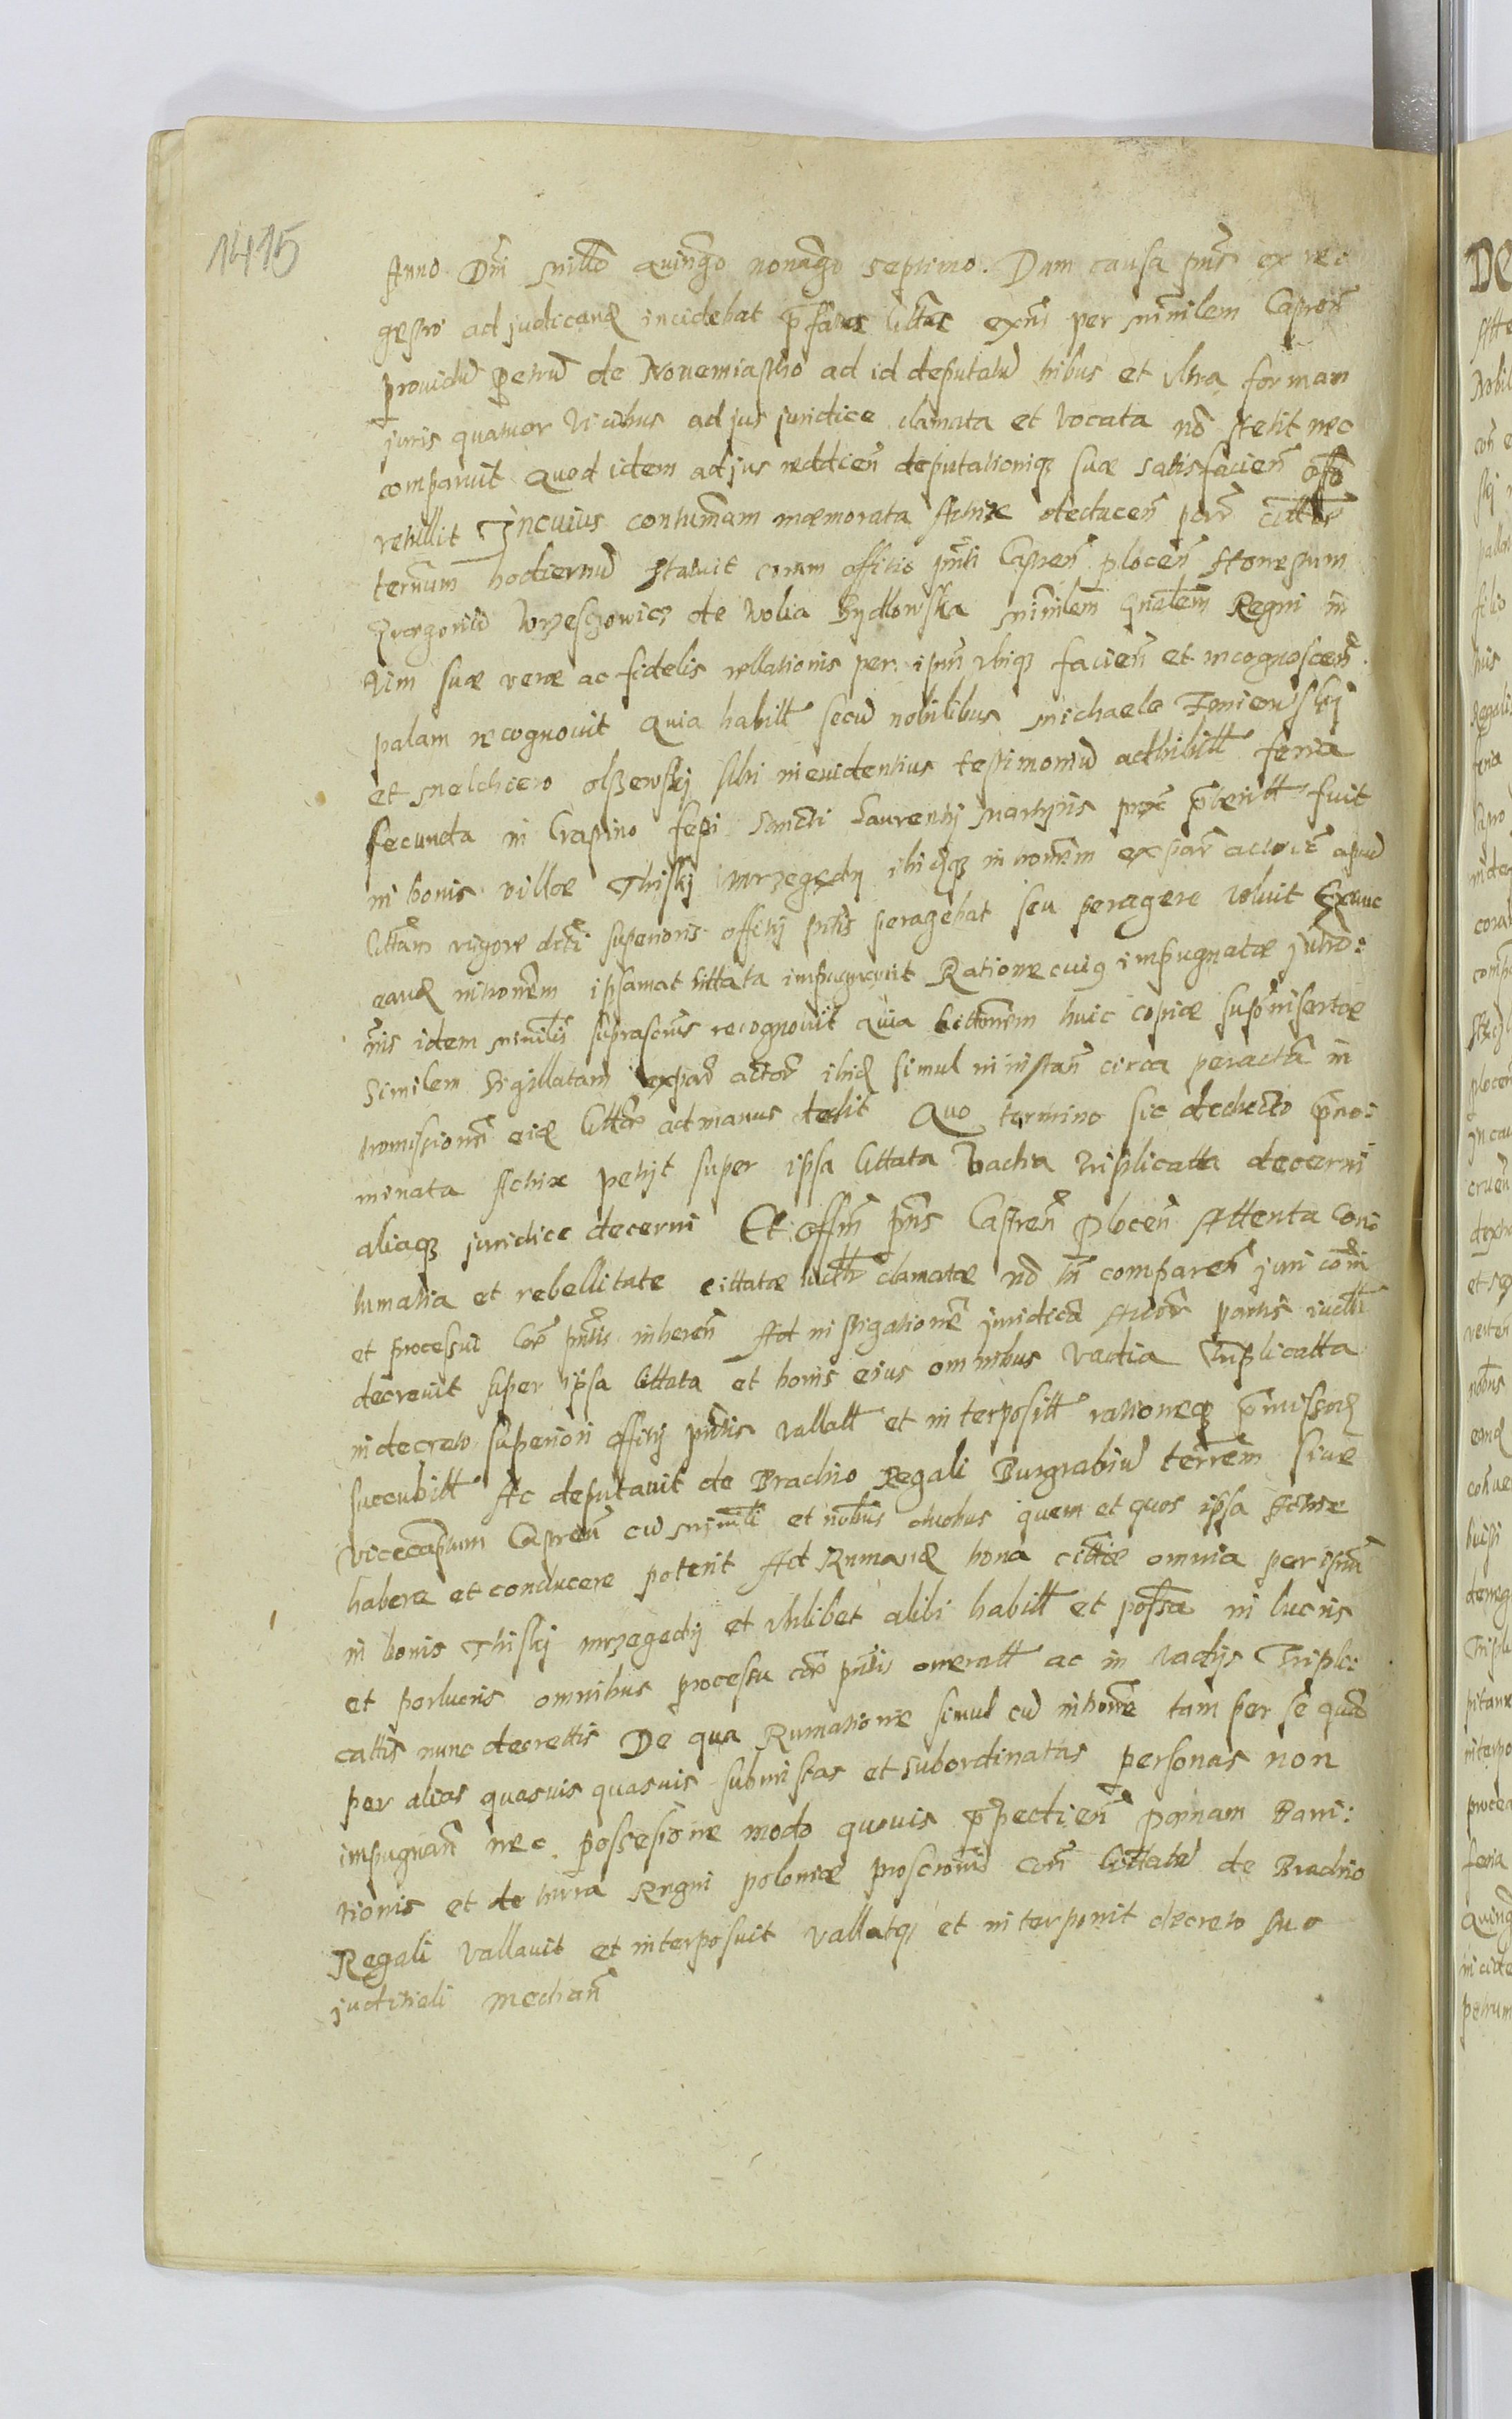 1415
Anno Dni Millo quingo nonago septimo. Dum causa pns ex re:
gestro ad judicand incidebat p̄fatos littas exns per Minilem Castren
prouidū Petrū de Nouemiasto ad id deputatū tribus et vltra formam
juris quatuor vicibus ad jus juridice clamata et vocata nō stetit nec
comparuit quod idem ad jus reddien deputationiq suæ satisfacien offō
retullit In cuius contumam mæmorata Actrix deducen parr cittor
ternum hodiernū statuit coram offitio pnti Castren plocen Honestum
Gregoriū Wrzeszowicz de Wolia Bydlowska Minilem Gnalem Regni in
Vim suæ veræ ac fidelis rellationis per ipm vbiq facien et recognoscen
palam recognouit Quia habitt secū nobilibus Michaele
et Melchiero olszewskj sibi in euidentius testimoniū adhibitt feria
secunda in Crastino festi Sancti Laurentij Martyris prox p̄teritt fuit
in bonis villæ Thiskj Mrzegodij ibidq intronem ex par actoris apud
littam vigore dcti superioris offitij pntis peragebat seu peragere voluit Ex nunc
eand intronem ipsamat littata impugnavit Ratione cuiq impugnatæ jntro:
nis idem Minilis suprascrus recognouit quia littonem huic copiæ super insertæ
Similem Sigillatam ex par actor ibid simul in instan circa peractā in
tromissionem eid littæ ad manus dedit Quo termino sic deducto p̄no:
minata Actrix petijt super ipsa littata Vadia triplicatta decerni
aliaq juridice decerni Et offm pns Castren Plocen Attenta Con:
tumatia et rebellitate cittatæ clamatæ nō tn comparen juri coīi
et processui cor pntis inheren Ad instigationē juridicā Actor partis
decreuit super ipsa littata et bonis eius omnibus Vadia Triplicatta
in decreto superiori offitij pntis vallatt et interpositt rationeq p̄missor
succubitt Ac deputauit de Brachio Regali Burgrabiū terrem siue
vicecaptum Castren cū Minili et nobus duobus quem et quos ipsa Actrix
habere et conducere poterit Ad Rumand bona cittæ omnia per ipm
in bonis Thiskj mrzegodij et vbilibet alibi habitt et possa in lucris
et perlucris omnibus processu cor pntis oneratt ac in vadijs Tripli:
cattis nunc decrettis De qua Rumatione simul cū introne tam per se quā
per alias quasuis quasuis submistas et subordinatas personas non
impugnan nec possesione modo quouis p̄pedien pœnam Bani:
tionis et de terra Regni poloniæ proscronis Con Littatū de Brachio
Regali vallauit et interposuit vallatq et interponit decreto suo
juditieli median